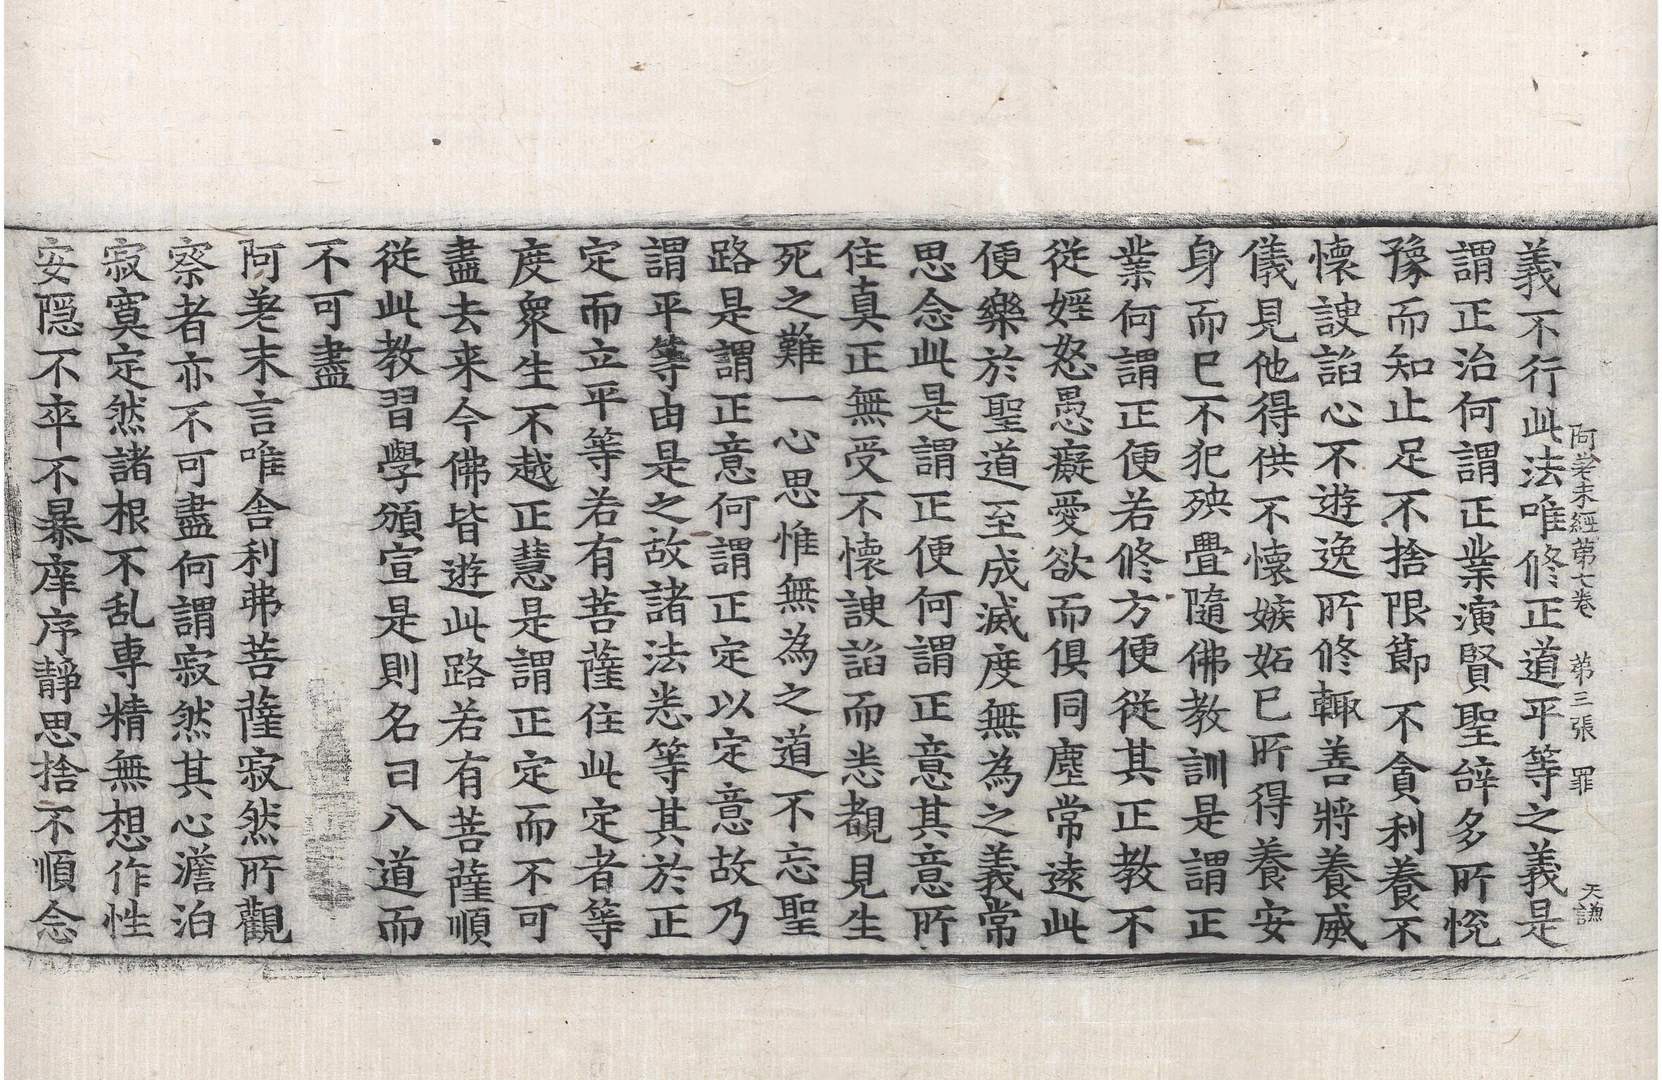 阿差末經第七卷　第三張　罪　天謙
義不行此法唯修正道平等之義是
謂正治何謂正業演賢聖辞多所悅
豫而知止足不捨限節不貪利養不
懷諛諂心不遊逸所修輙善將養威
儀見他得供不懷嫉妬已所得養安
身而已不犯殃疊隨佛教訓是謂正
業何謂正便若修方便從其正教不
從婬怒愚癡愛欲而俱同塵常遠此
便樂於聖道至成滅度無為之義常
思念此是謂正便何謂正意其意所
住真正無受不懷諛諂而悉覩見生
死之難一心思惟無為之道不忘聖
路是謂正意何謂正定以定意故乃
謂平等由是之故諸法悉等其於正
定而立平等若有菩薩住此定者等
度衆生不越正慧是謂正定而不可
盡去来今佛皆遊此路若有菩薩順
從此教習學頒宣是則名曰八道而
不可盡
阿差末言唯舍利弗菩薩寂然所觀
察者亦不可盡何謂寂然其心澹泊
寂寞定然諸根不乱専精無想作性
安隠不卒不暴庠序靜思捨不順念